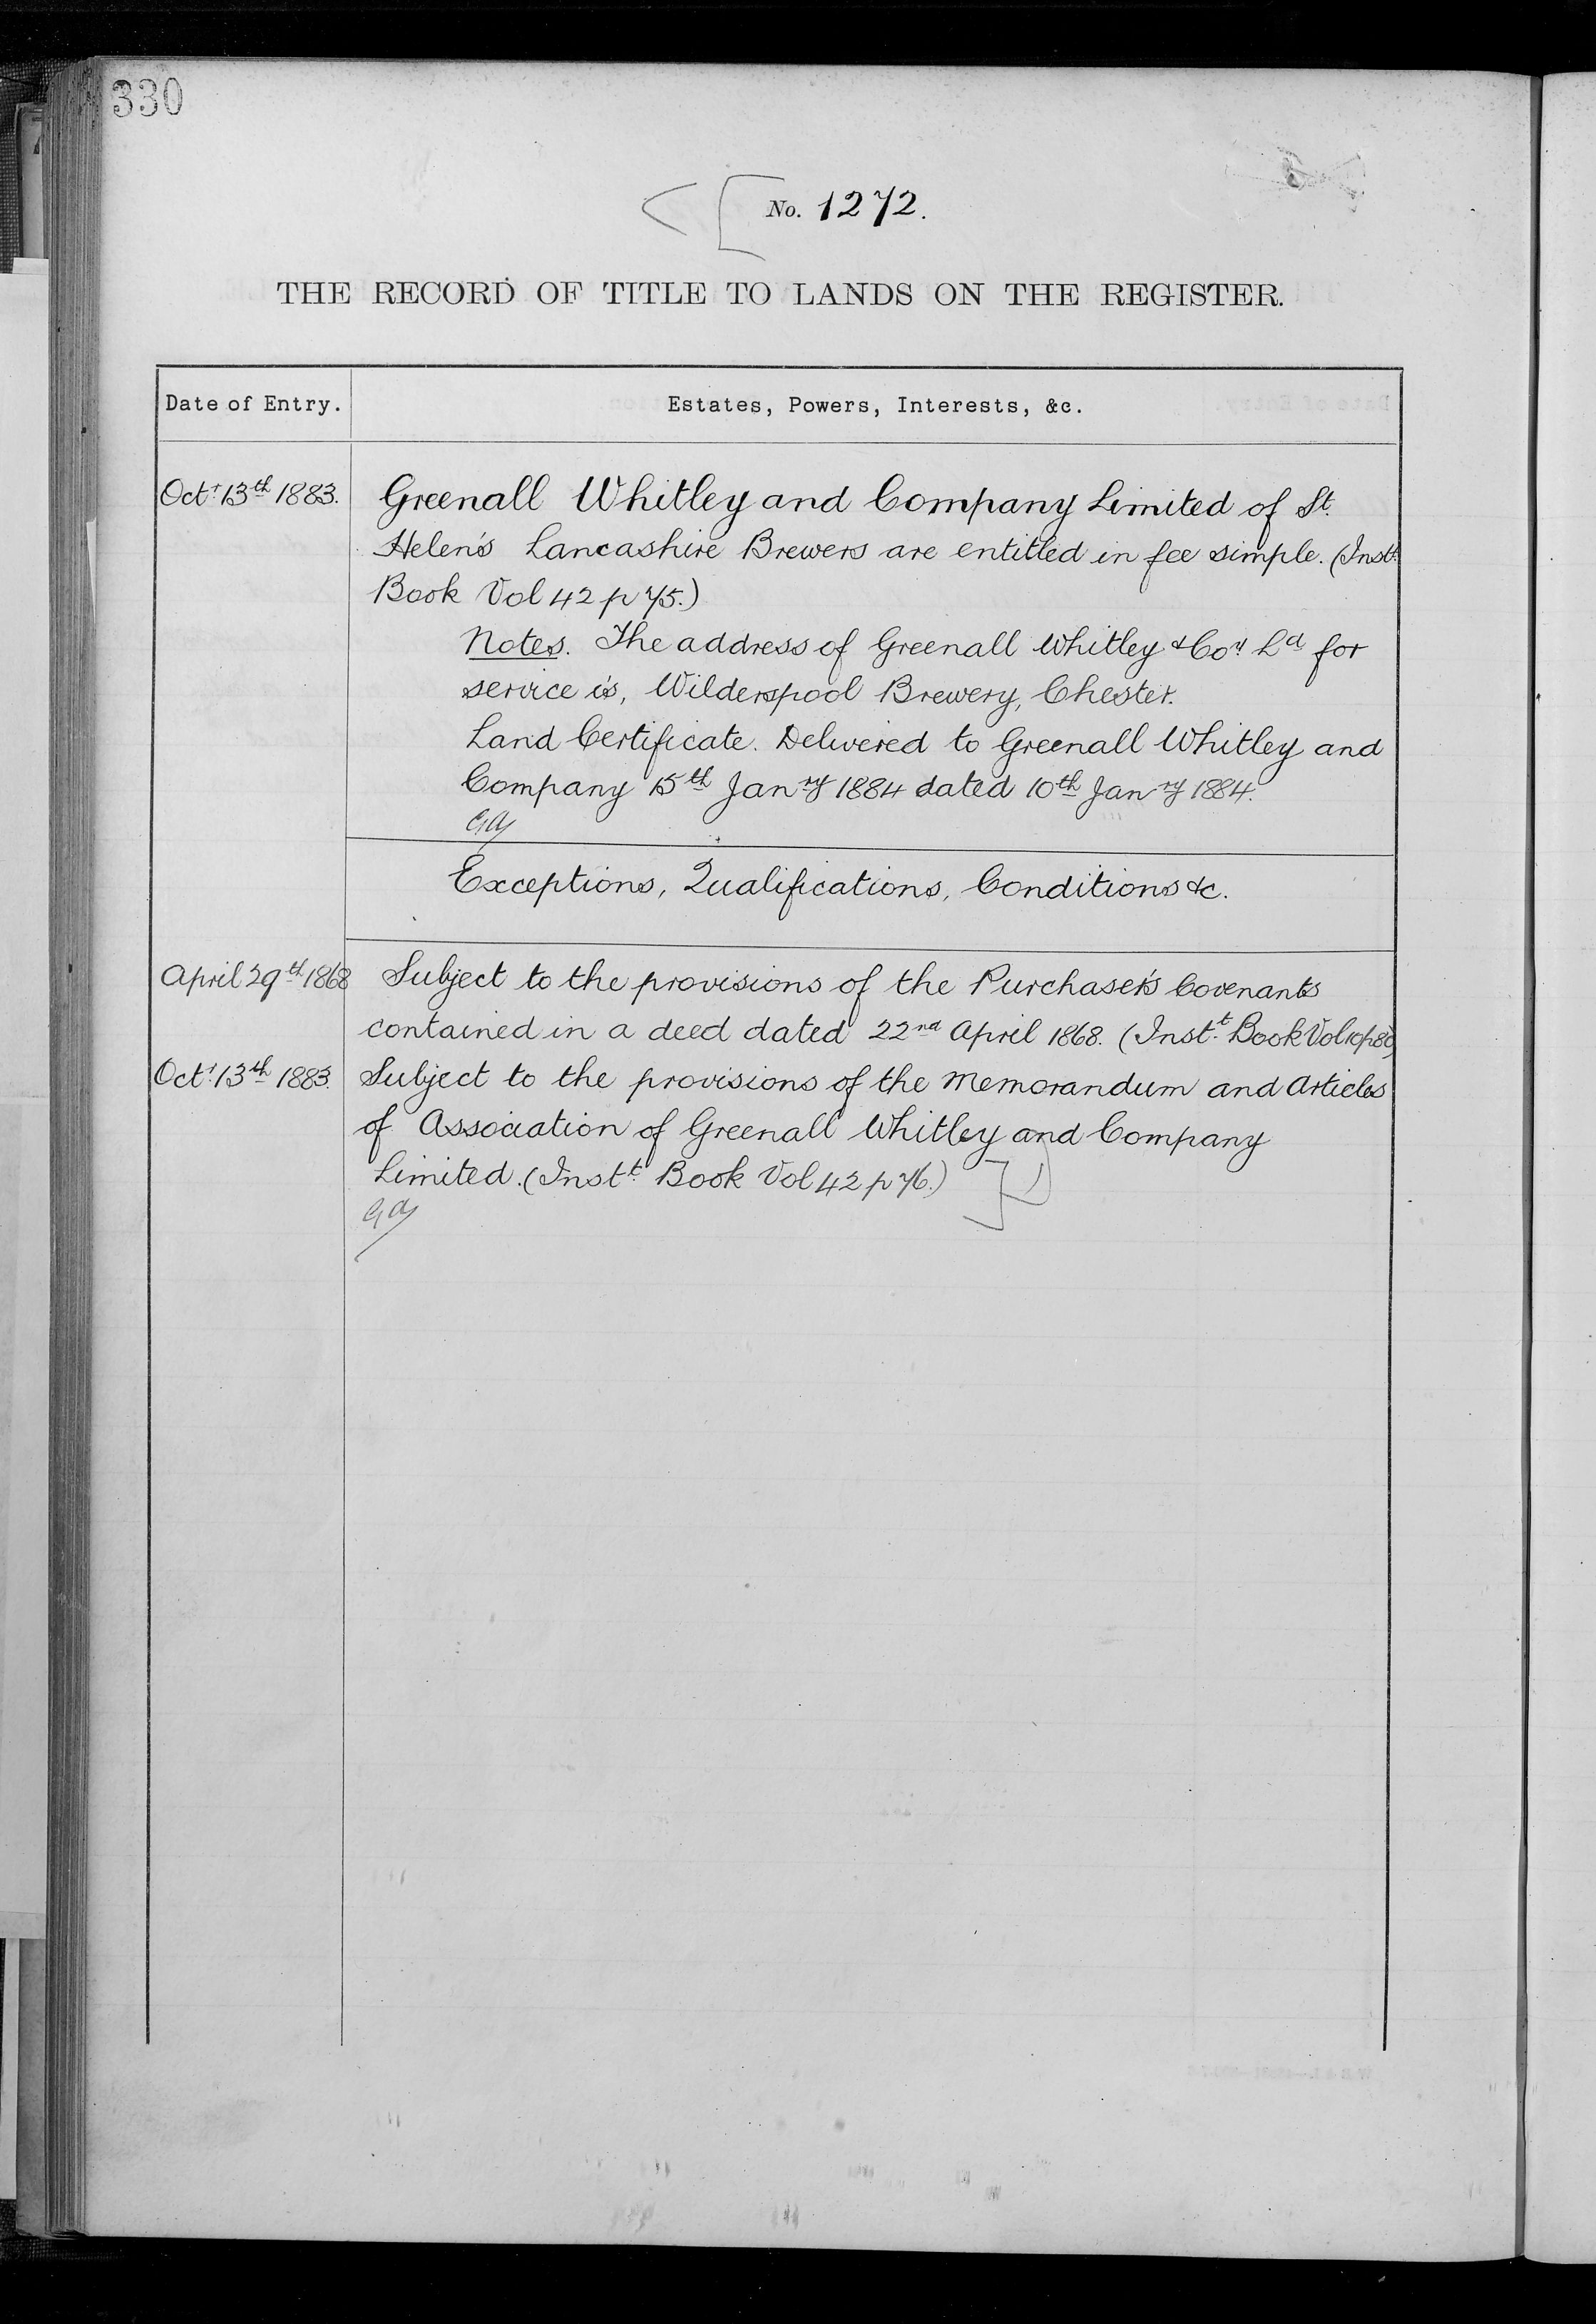 330
No. 1272.
THE RECORD OF TITLE TO LANDS ON THE REGISTER.
Date of Entry.
Estates, Powers, Interests, &c.
Octr 13th 1883.
Greenall Whitley and Company Limited of St.
Helen's Lancashire Brewers are entitled in fee simple. (Instt
Book Vol 42 p 75.)
Notes. The address of Greenall Whitley & Coy Ld for
service is, Wilderspool Brewery, Chester.
Land Certificate. Delivered to Greenall Whitley and
Company 15th Janry 1884 dated 10th Janry 1884.
Exceptions, Qualifications, Conditions &c.
April 29th 1868
Subject to the provisions of the Purchaser's Covenants
contained in a deed dated 22nd April 1868. (Instt Book Vol 10 p 80)
Octr 13th 1883.
Subject to the provisions of the Memorandum and Articles
of Association of Greenall Whitley and Company
Limited. (Instt Book Vol 42 p 76.)